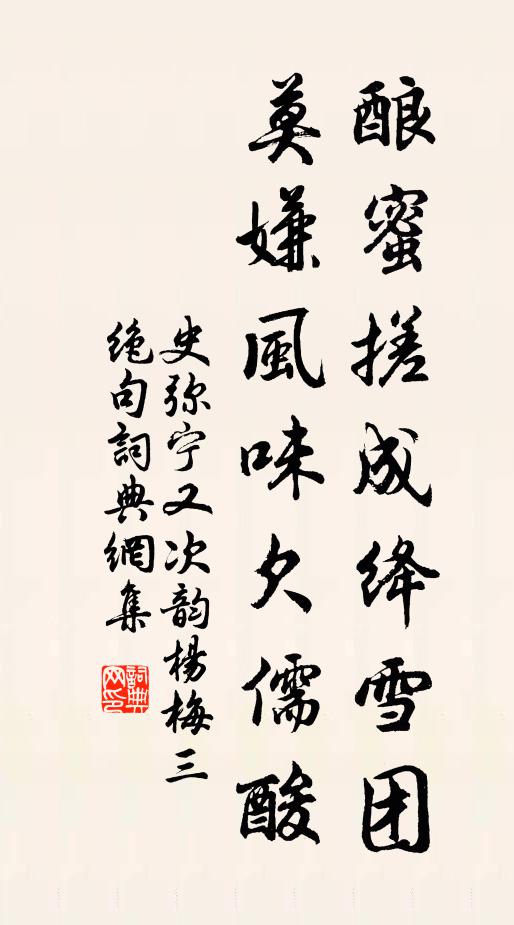 酿蜜搓成绛雪团
莫嫌風味欠儒酸
史弥宁又次韵楊梅三
绝句詞典網集
詞典网印